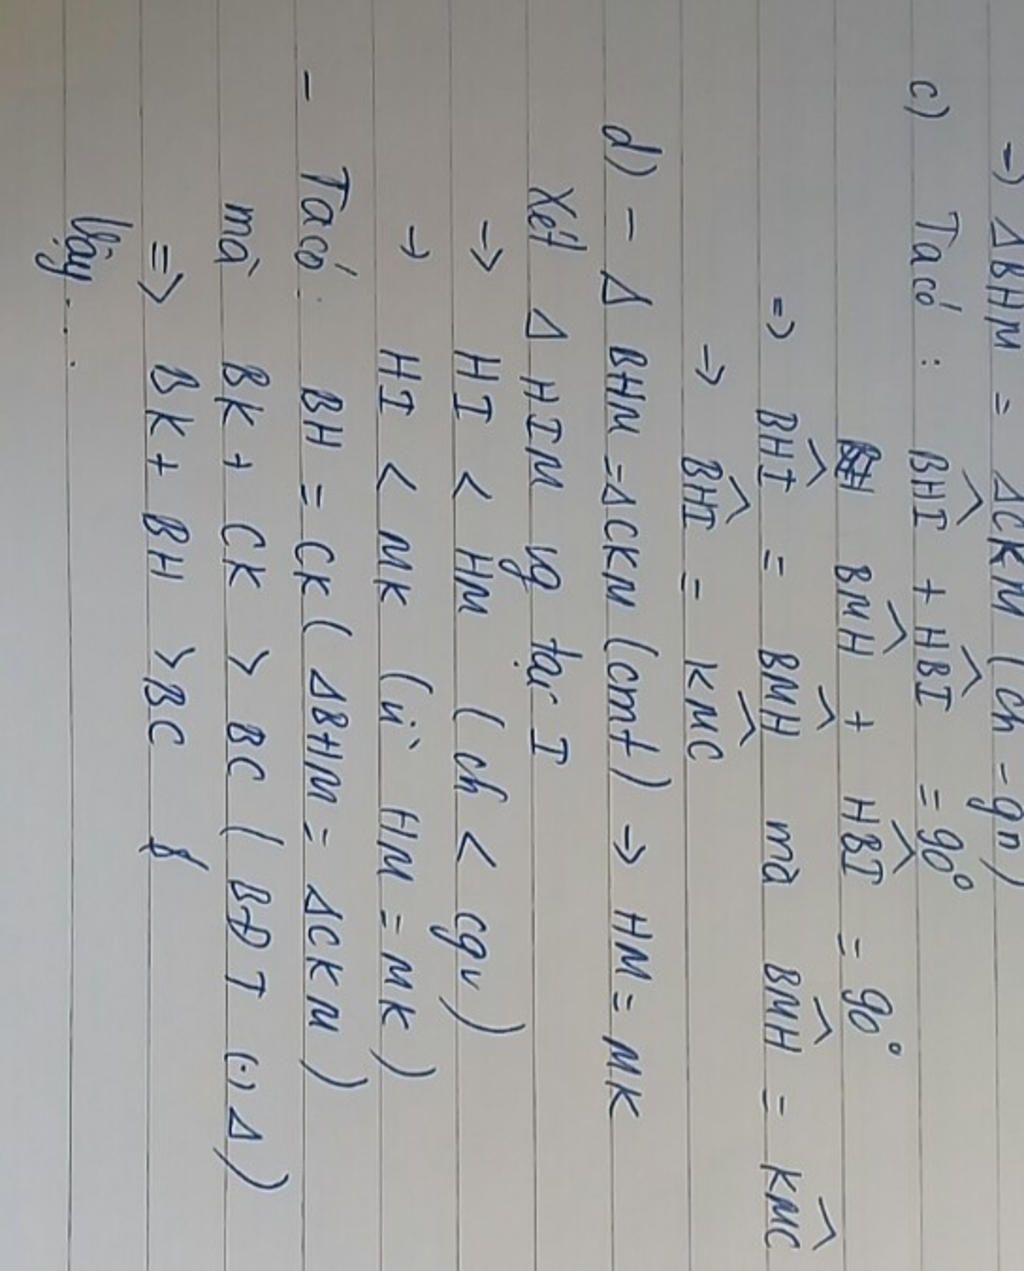 →) ΔBHM = ΔCKM (ch - gn)
c) Ta có : BHI^ + HBI^ = 90°
BMH^ + HBI^ = 90°
=> BHI^ = BMH^ mà BMH^ = KMC^
→ BHI^ = KMC^
d) - Δ BHM = ΔCKM (cmt) → HM = MK
Xét Δ HIM vg tại I
→ HI < HM (ch < cgv)
→ HI < MK (vì HM = MK)
- Ta có : BH = CK ( ΔBHM = ΔCKM )
mà BK + CK > BC ( BĐT (·) Δ )
=> BK + BH > BC
Vậy ....